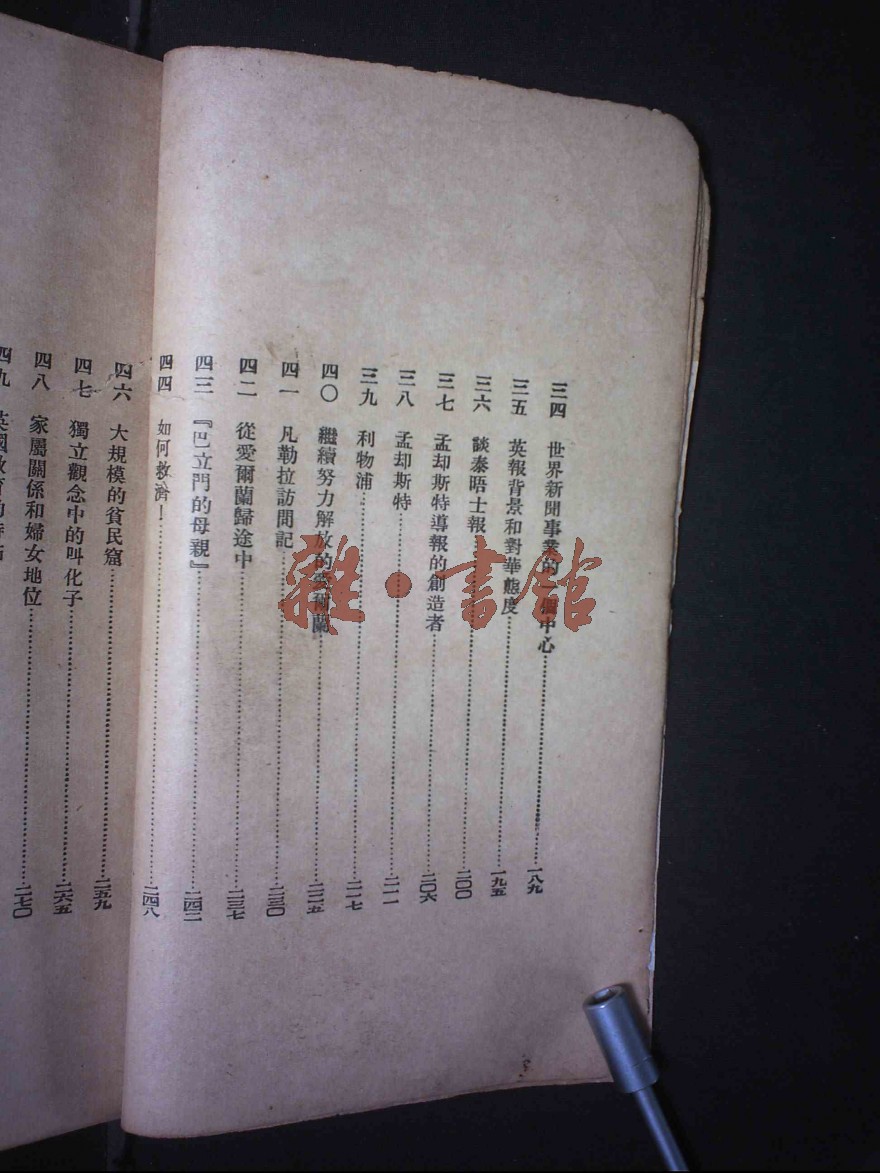 三四 世界新聞事業的一個中心……一八九
三五 英報背景和對華態度……一九五
三六 談泰晤士報……二〇〇
三七 孟却斯特導報的創造者……二〇六
三八 孟却斯特……二一一
三九 利物浦……二一七
四〇 繼續努力解放的愛爾蘭……二二五
四一 凡勒拉訪問記……二三〇
四二 從愛爾蘭歸途中……二三七
四三 『巴立門的母親』……二四二
四四 如何救濟！……二四八
四六 大規模的貧民窟……二五九
四七 獨立觀念中的叫化子……二六五
四八 家屬關係和婦女地位……二七〇
四九 英國教育的特點
雜·書館